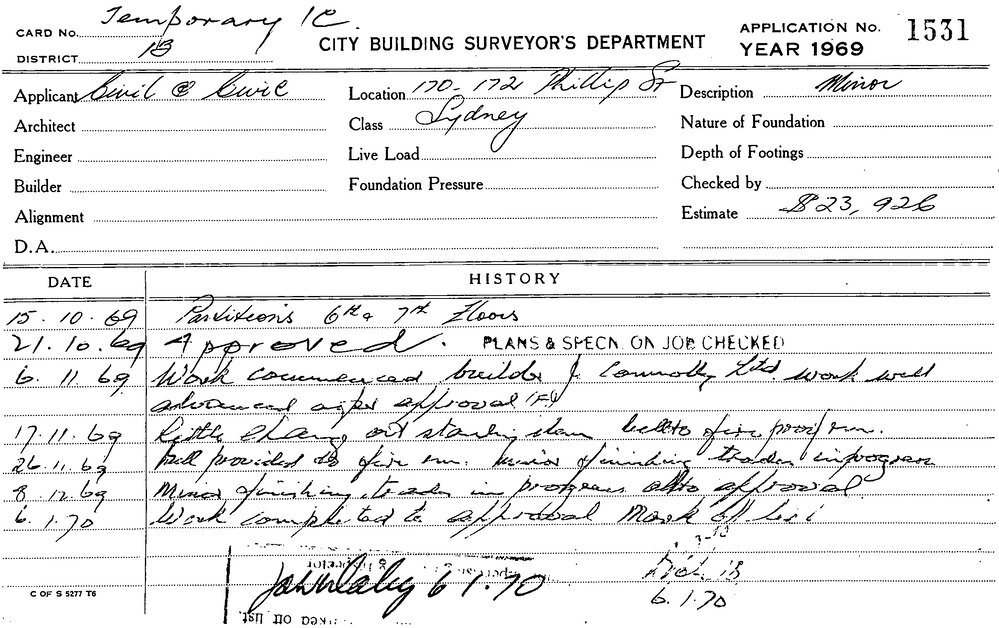 CARD No. Temporary 1C
DISTRICT 13
CITY BUILDING SURVEYOR'S DEPARTMENT
APPLICATION No. 1531
YEAR 1969
Applicant Civil & Civic
Location 170-172 Phillip St
Description Minor
Architect
Class Sydney
Nature of Foundation
Engineer
Live Load
Depth of Footings
Builder
Foundation Pressure
Checked by
Alignment
Estimate $23,926
D.A.
DATE HISTORY
15.10.69 Partitions 6th & 7th Floors
21.10.69 Approved. PLANS & SPECN. ON JOB CHECKED
6.11.69 Work commenced, builder J. Connolly Ltd. work well
advanced as per approval
17.11.69 Little change outstanding item fire proof
26.11.69 provided to fire minor finishing trades in progress
8.12.69 Minor finishing trades in progress all to approval
6.1.70 Work completed to approval Mark off list
Dist 13
6.1.70
6 1.70
C OF S 5277 T6